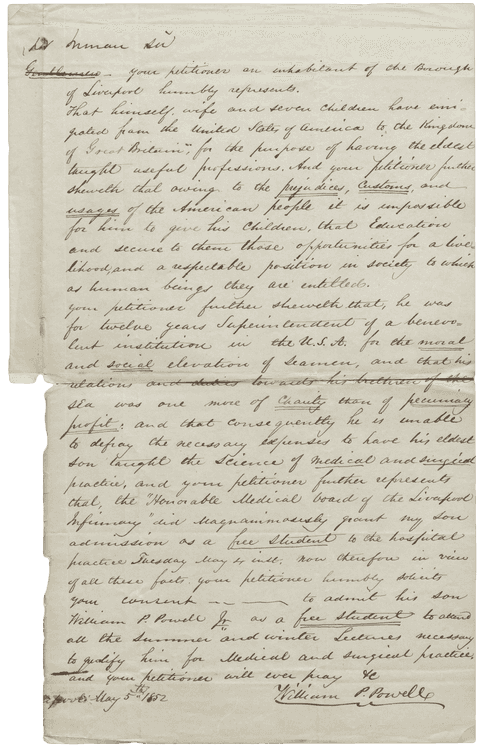 Inman Sir
Gentlemen — your petitioner an inhabitant of the Borough
of Liverpool humbly represents.
That himself, wife and seven children have emi-
grated from the United States of America to the Kingdom
of Great Britain, for the purpose of having the eldest
taught useful professions. And your petitioner further
sheweth that owing to the prejudices, Customs, and
usages of the American people it is impossible
for him to give his Children, that Education
and secure to them those opportunities for a live-
lihood, and a respectable position in society to which
as human beings they are entitled.
your petitioner further sheweth that, he was
for twelve years Superintendent of a benevo-
lent institution in the U.S.A. for the moral
and social elevation of Seamen, and that his
relations and duties towards his brethren of the
sea was one more of Charity than of pecuniary
profit: and that consequently he is unable
to defray the necessary expenses to have his eldest
son taught the Science of medical and surgical
practice, and your petitioner further represents
that, the "Honorable Medical board of the Liverpool
Infirmary" did Magnanimously grant my son
admission as a free student to the hospital
practice Tuesday May 4 inst; now therefore in view
of all these facts. your petitioner humbly solicits
your consent — — to admit his son
William P. Powell Jr as a free student to attend
all the Summer and winter Lectures necessary
to qualify him for Medical and surgical practice,
and your petitioner will ever pray &c
May 5th 1852 William P. Powell